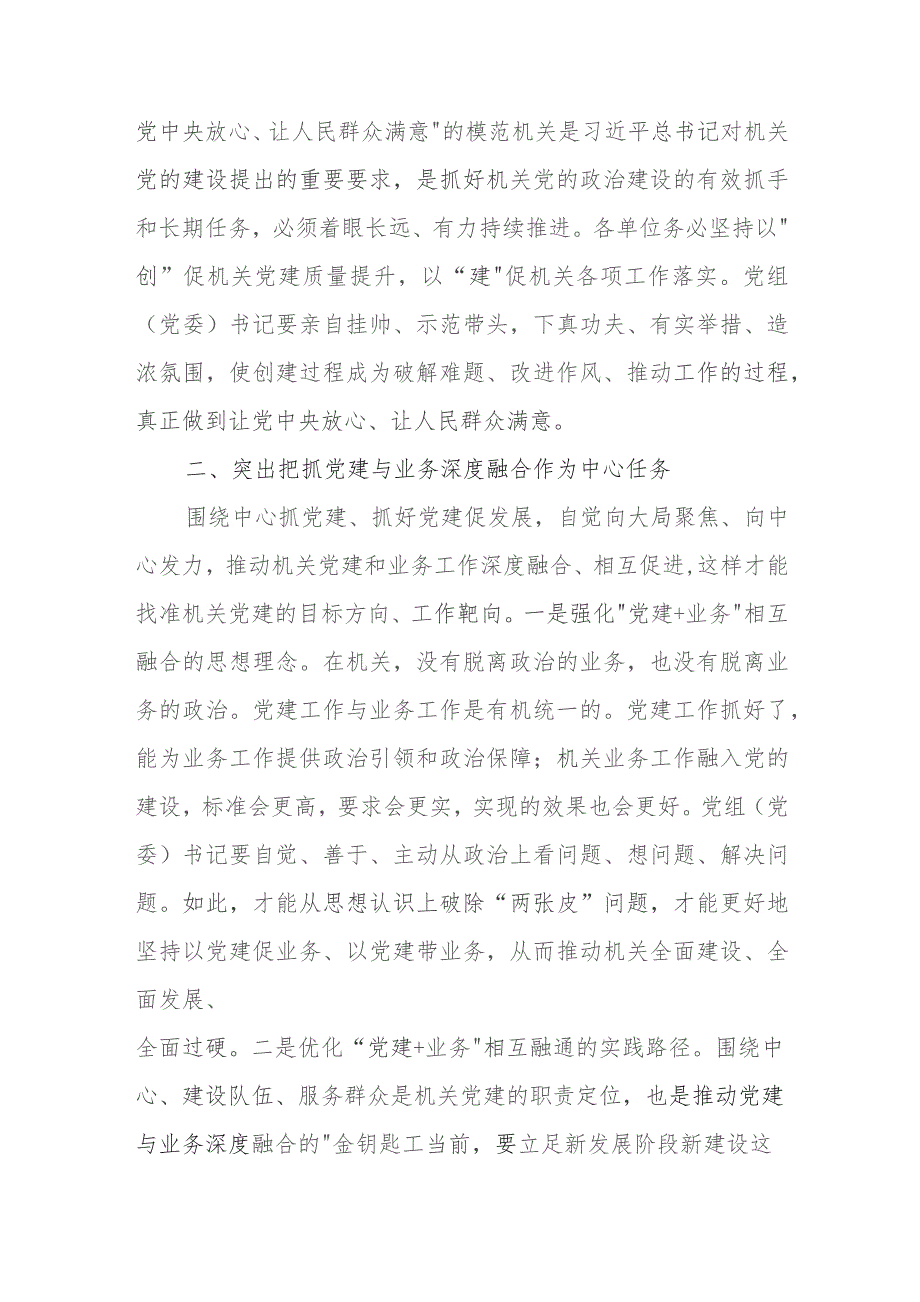 党中央放心、让人民群众满意"的模范机关是习近平总书记对机关
党的建设提出的重要要求，是抓好机关党的政治建设的有效抓手
和长期任务，必须着眼长远、有力持续推进。各单位务必坚持以"
创”促机关党建质量提升，以“建"促机关各项工作落实。党组
（党委）书记要亲自挂帅、示范带头，下真功夫、有实举措、造
浓氛围，使创建过程成为破解难题、改进作风、推动工作的过程，
真正做到让党中央放心、让人民群众满意。
二、突出把抓党建与业务深度融合作为中心任务
围绕中心抓党建、抓好党建促发展，自觉向大局聚焦、向中
心发力，推动机关党建和业务工作深度融合、相互促进,这样才能
找准机关党建的目标方向、工作靶向。一是强化"党建+业务"相互
融合的思想理念。在机关，没有脱离政治的业务，也没有脱离业
务的政治。党建工作与业务工作是有机统一的。党建工作抓好了，
能为业务工作提供政治引领和政治保障；机关业务工作融入党的
建设，标准会更高，要求会更实，实现的效果也会更好。党组（党
委）书记要自觉、善于、主动从政治上看问题、想问题、解决问
题。如此，才能从思想认识上破除“两张皮”问题，才能更好地
坚持以党建促业务、以党建带业务，从而推动机关全面建设、全
面发展、
全面过硬。二是优化“党建+业务"相互融通的实践路径。围绕中
心、建设队伍、服务群众是机关党建的职责定位，也是推动党建
与业务深度融合的"金钥匙工当前，要立足新发展阶段新建设这